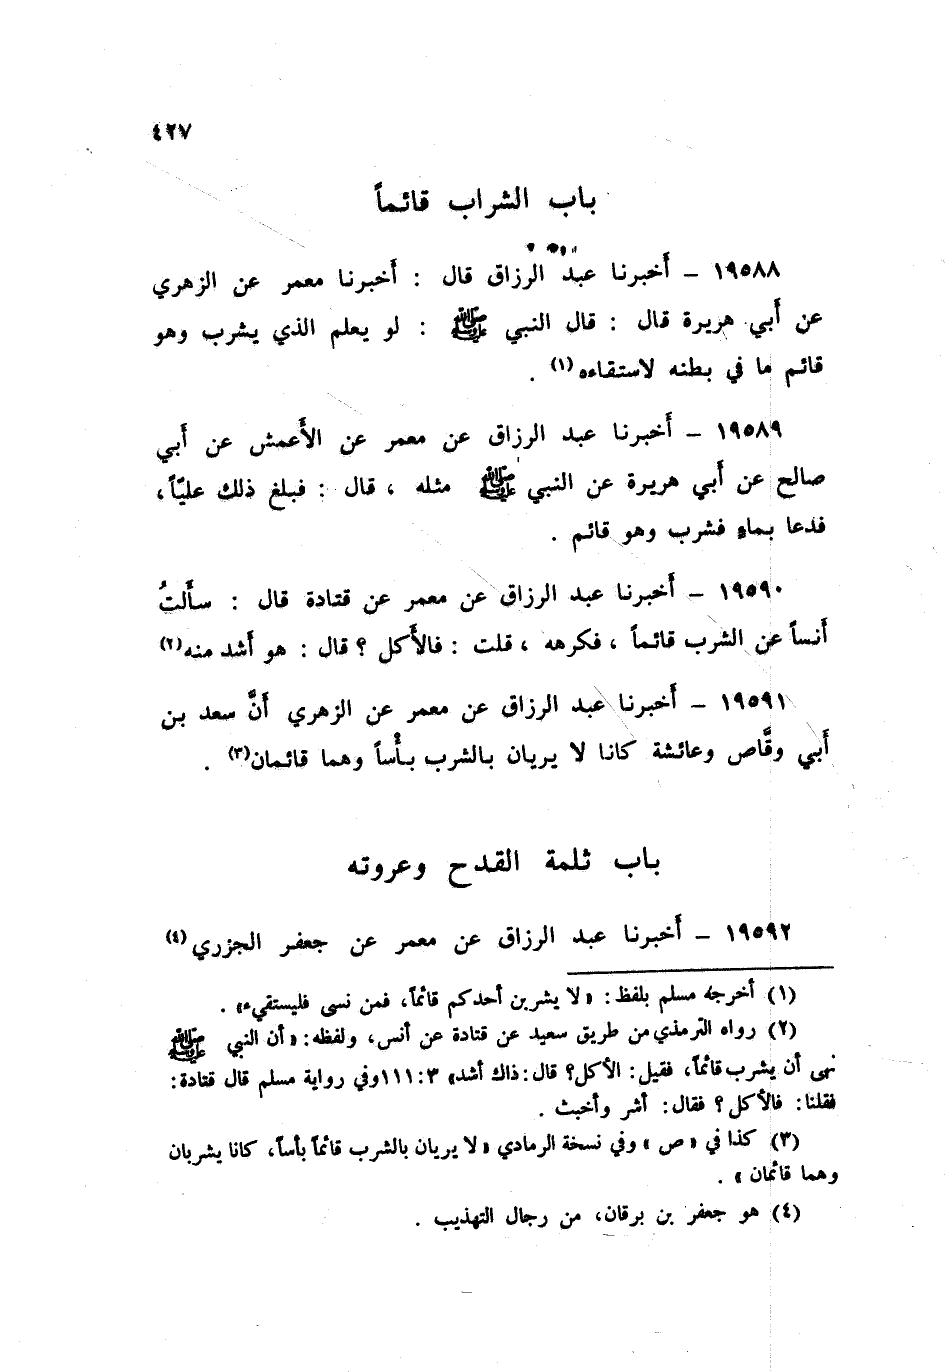 ٤٢٧
باب الشراب قائماً
١٩٥٨٨ – أخبرنا عبد الرزاق قال : أخبرنا معمر عن الزهري
عن أبي هريرة قال : قال النبي ﷺ : لو يعلم الذي يشرب وهو
قائم ما في بطنه لاستقاءه (١) .
١٩٥٨٩ – أخبرنا عبد الرزاق عن معمر عن الأعمش عن أبي
صالح عن أبي هريرة عن النبي ﷺ مثله ، قال : فبلغ ذلك عليّاً ،
فدعا بماءٍ فشرب وهو قائم .
١٩٥٩٠ – أخبرنا عبد الرزاق عن معمر عن قتادة قال : سألتُ
أنساً عن الشرب قائماً ، فكرهه ، قلت : فالأكل ؟ قال : هو أشد منه (٢)
١٩٥٩١ – أخبرنا عبد الرزاق عن معمر عن الزهري أنَّ سعد بن
أبي وقَّاص وعائشة كانا لا يريان بالشرب بأساً وهما قائمان (٣) .
باب ثلمة القدح وعروته
١٩٥٩٢ – أخبرنا عبد الرزاق عن معمر عن جعفر الجزري (٤)
(١) أخرجه مسلم بلفظ : « لا يشربن أحدكم قائماً ، فمن نسى فليستقيء» .
(٢) رواه الترمذي من طريق سعيد عن قتادة عن أنس ، ولفظه : « أن النبي ﷺ
نهى أن يشرب قائماً ، فقيل : الأكل؟ قال : ذاك أشد» ٣ : ١١١ وفي رواية مسلم قال قتادة :
فقلنا : فالأكل ؟ فقال : أشر وأخبث .
(٣) كذا في « ص » وفي نسخة الرمادي « لا يريان بالشرب قائماً بأساً ، كانا يشربان
وهما قائمان » .
(٤) هو جعفر بن برقان ، من رجال التهذيب .